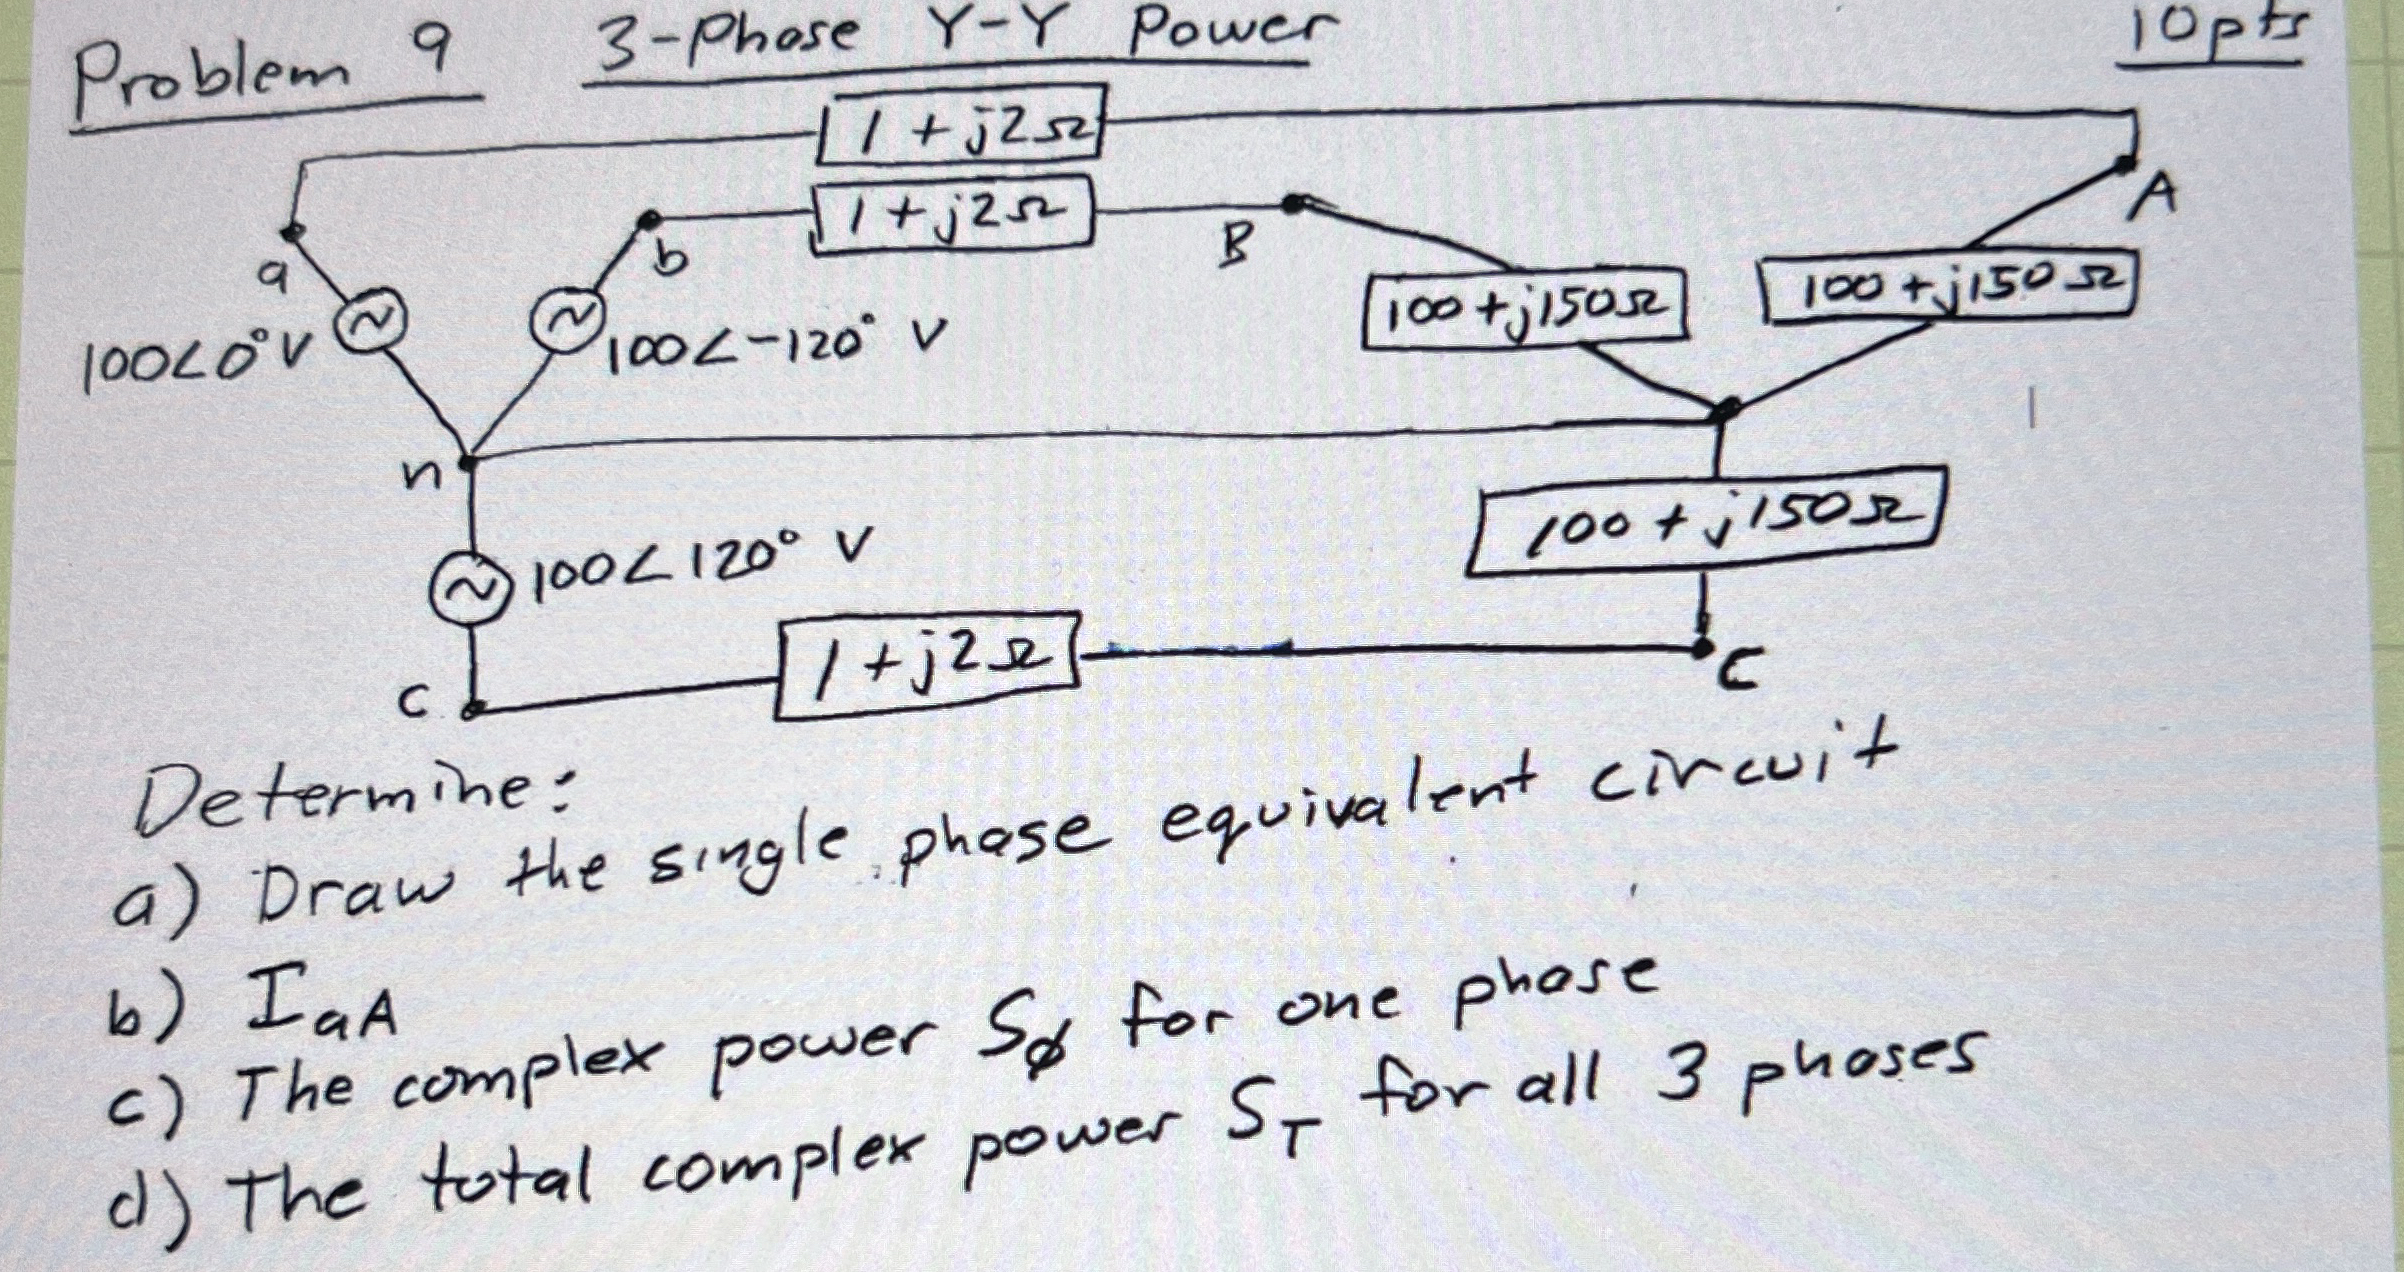 Problem 9 3-Phase Y-Y Power 10pts
1 + j2Ω
1 + j2Ω
A
a
b
B
100∠0° V
100∠-120° V
100 + j150Ω
100 + j150Ω
n
100∠120° V
100 + j150Ω
1 + j2Ω
c
C
Determine:
a) Draw the single phase equivalent circuit
b) IaA
c) The complex power Sø for one phase
d) The total complex power ST for all 3 phases